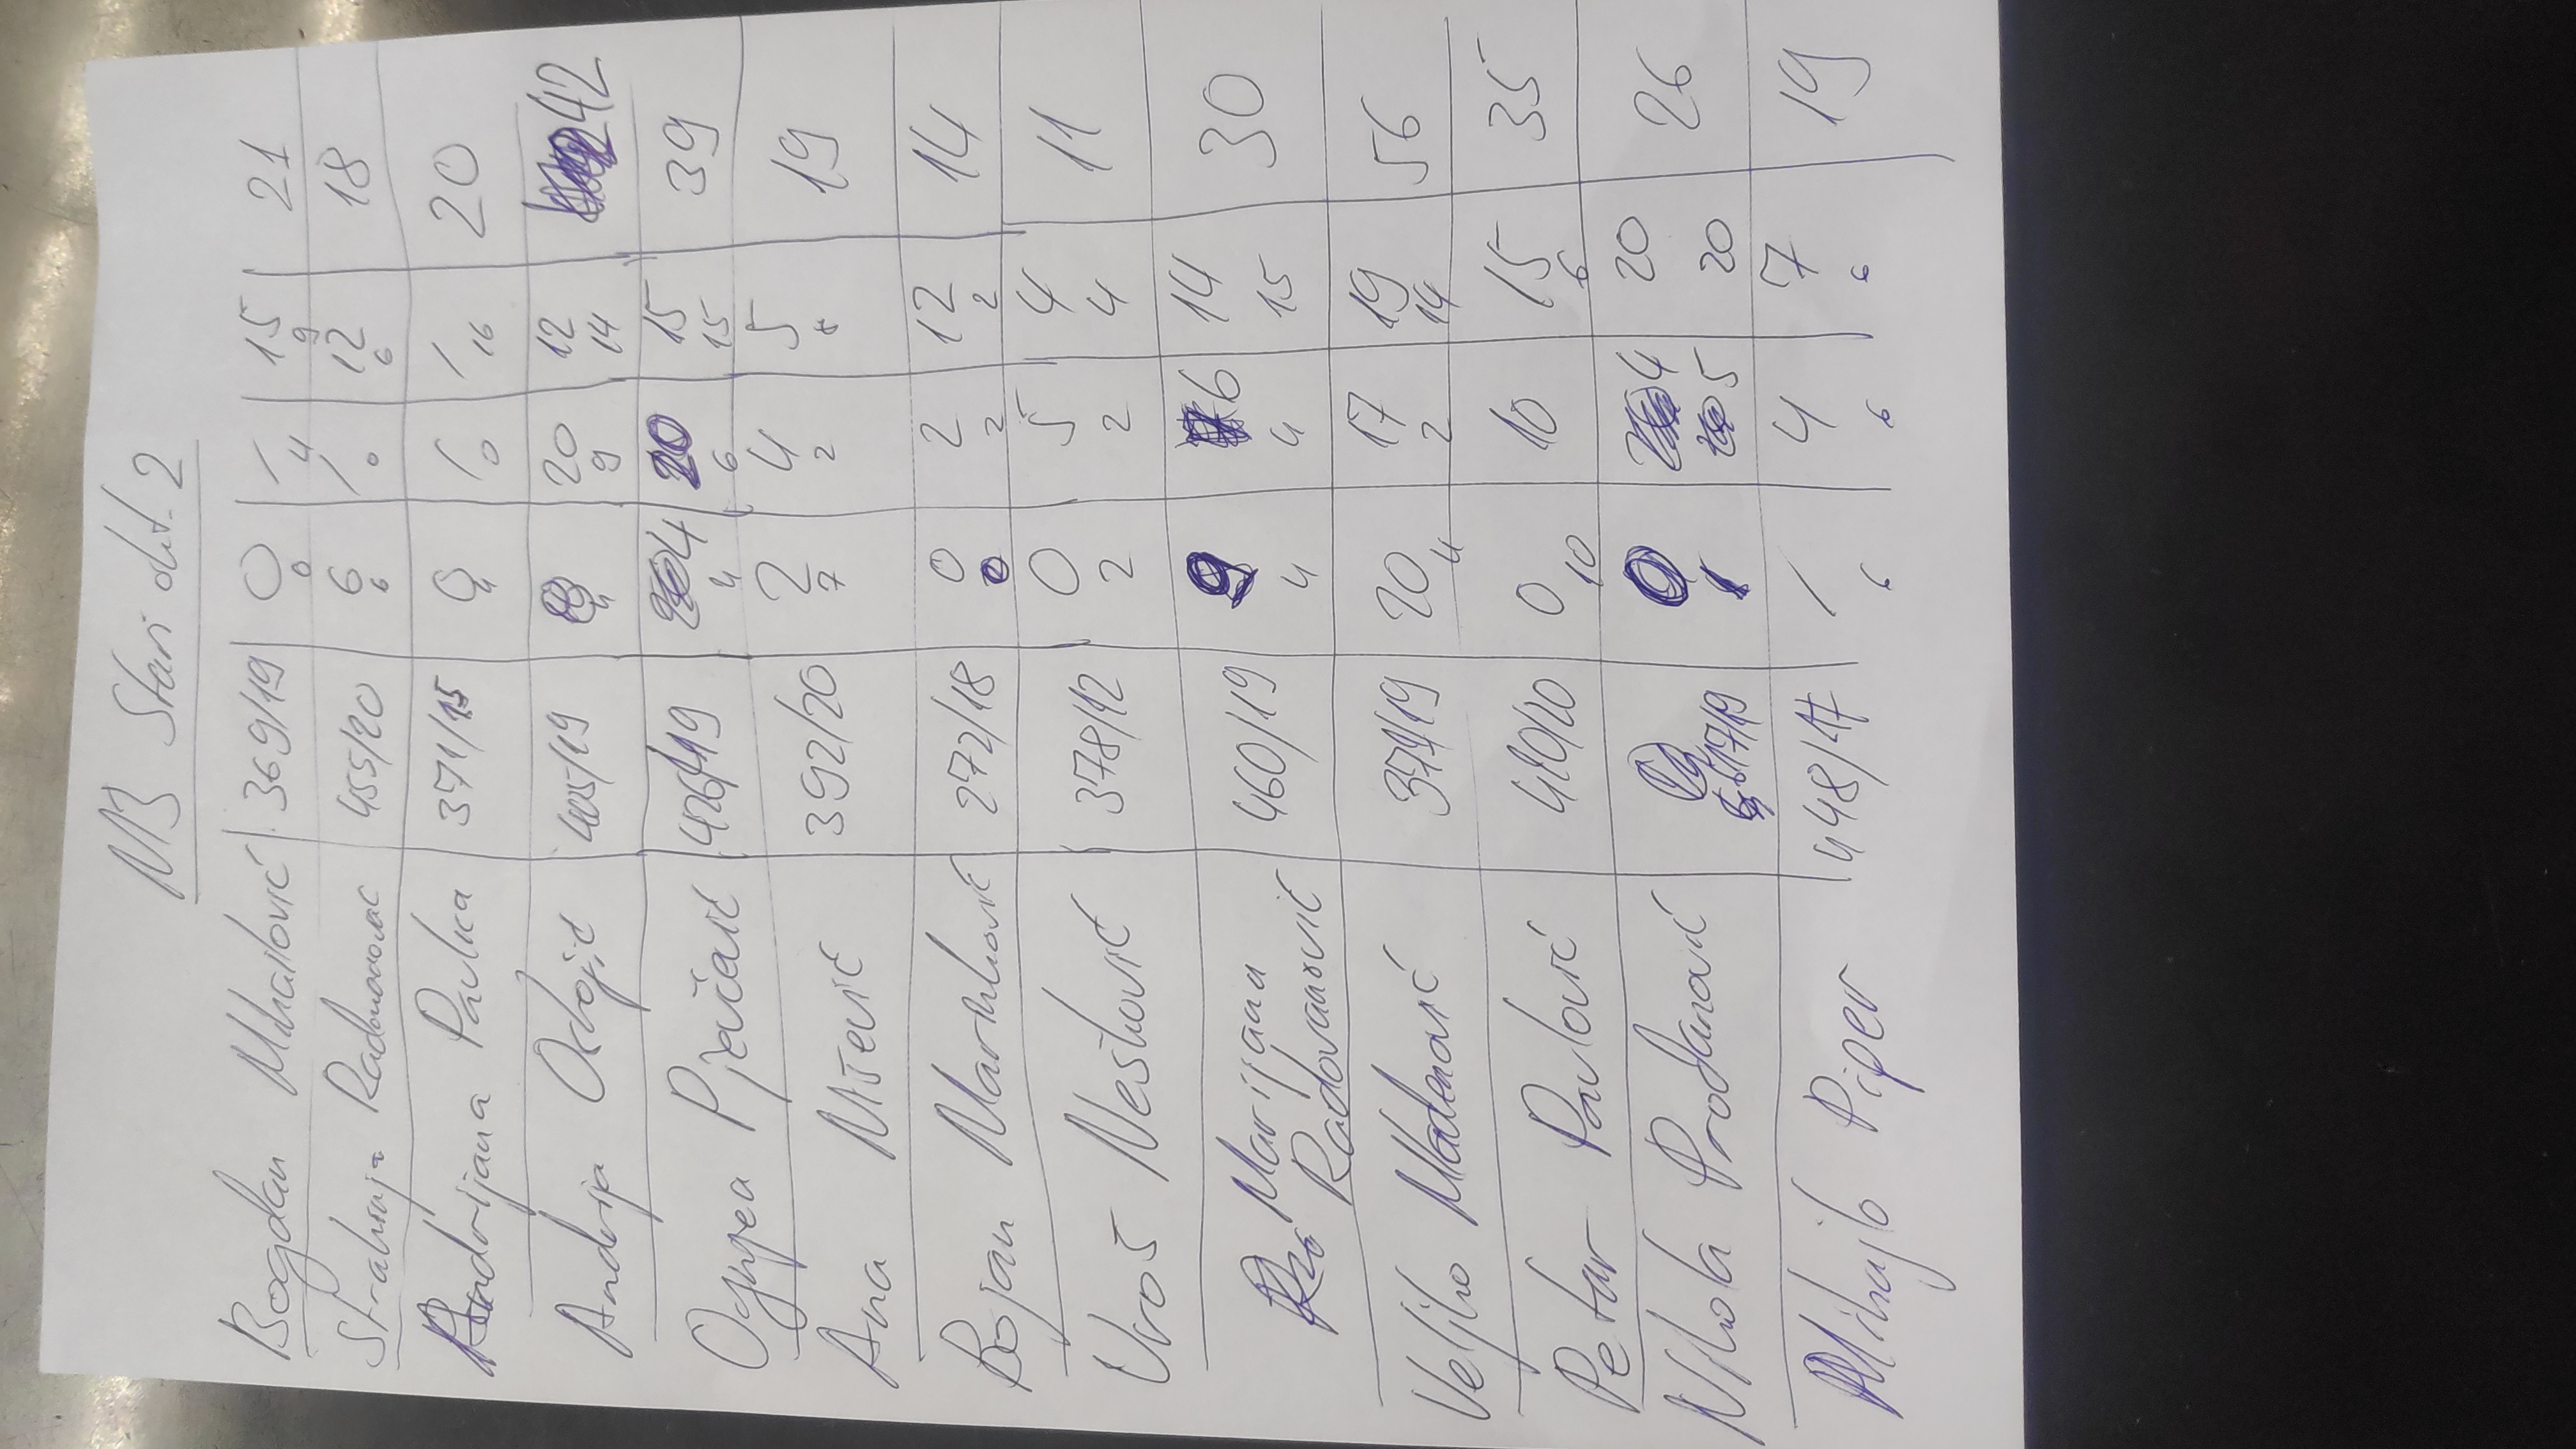 M3 Stari dat. 2
Bogdan Mihailović 369/19 0 / 15 21
0 4 9
Strahinja Radomirovac 455/20 6 / 12 18
6 0 6
Andrijana Pavka 371/15 0 / / 20
4 0 16
Andrija Odojić 405/19 20 12 42
4 9 14
Ognjen Pjevčević 426/19 4 20 15 39
4 6 15
Ana Mitević 392/20 2 4 5 19
7 2
Bojan Martinković 272/18 0 2 12 14
0 2 2
Uroš Nešković 378/12 0 5 4 11
2 2 4
Marijana 460/19 9 6 14 30
Radovanović 4 4 15
Veljko Mladenović 374/19 20 17 19 56
4 2 14
Petar Pavlović 410/20 0 10 15 35
10 6
Nikola Prodanović 17/19 0 4 20 26
1 5 20
Mihajlo Piper 448/17 / 4 7 19
6 6 6